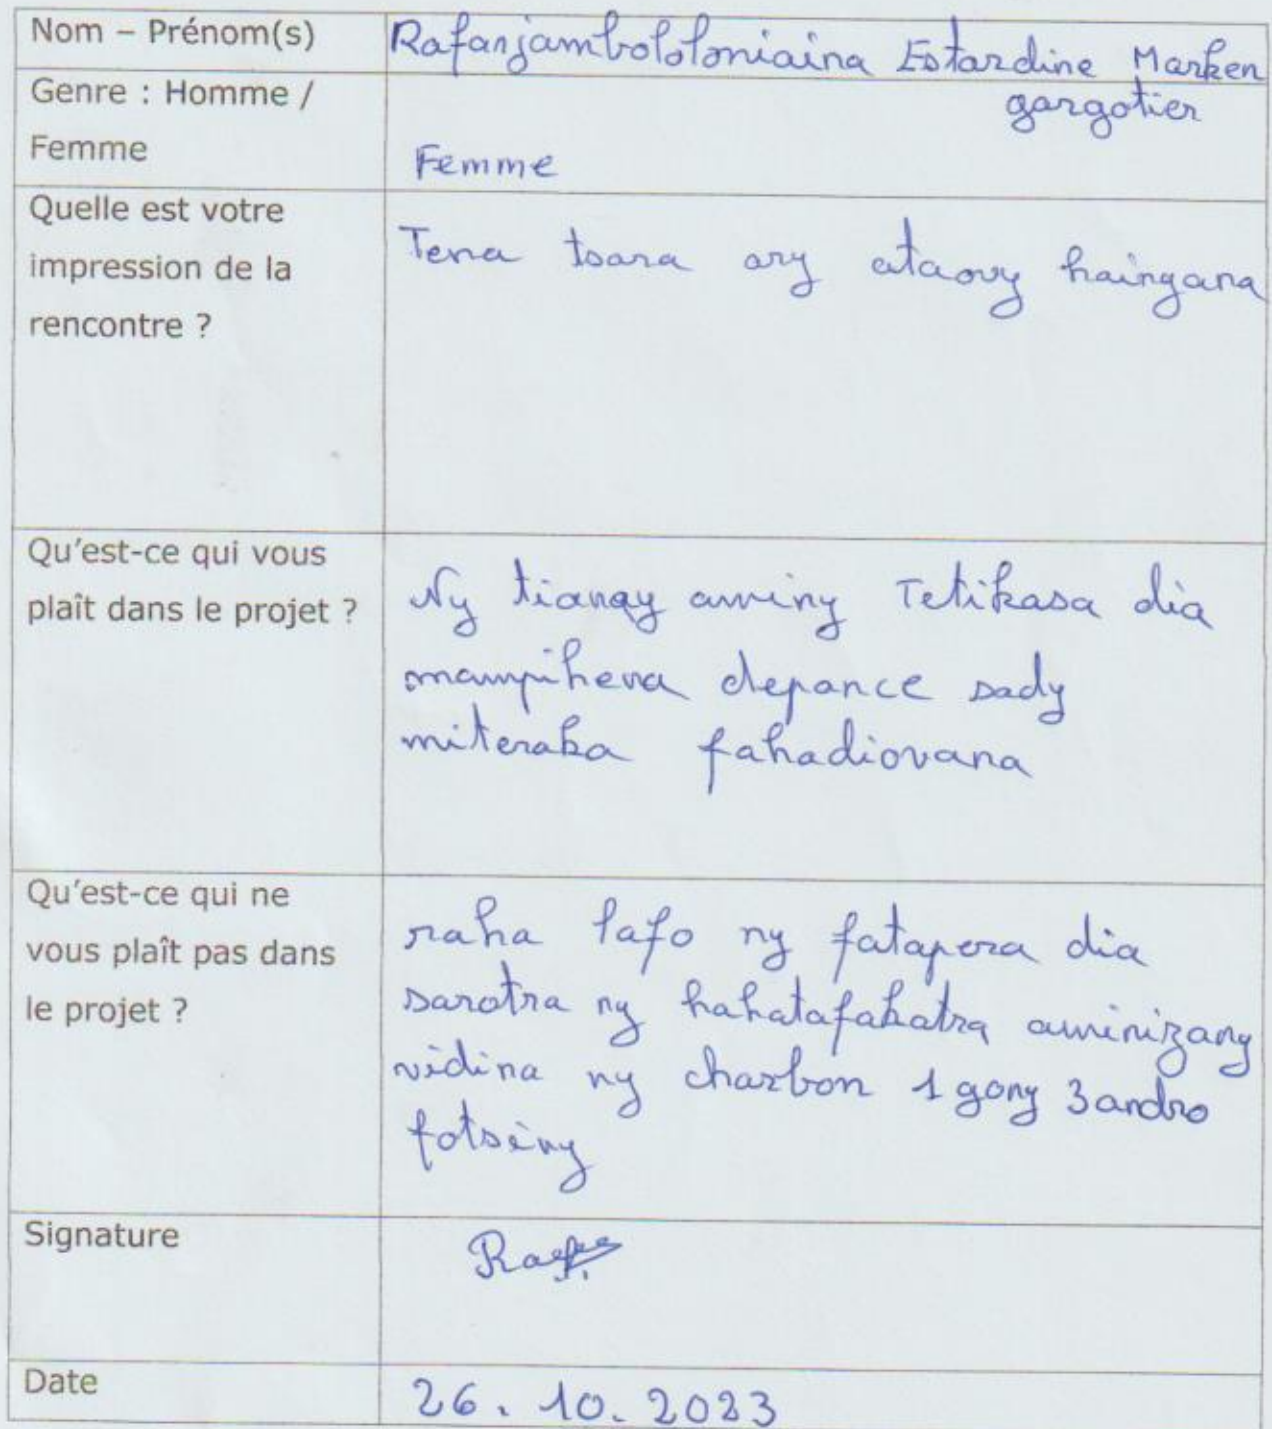 Nom – Prénom(s)
Rafanjambololoniaina Estardine Marken
gargotier
Genre : Homme /
Femme
Femme
Quelle est votre
impression de la
rencontre ?
Tena tsara ary ataovy haingana
Qu'est-ce qui vous
plaît dans le projet ?
Ny tianay aminy Tetikasa dia
mampihena depance sady
miteraka fahadiovana
Qu'est-ce qui ne
vous plaît pas dans
le projet ?
raha lafo ny fatapera dia
sarotra ny hahatafakatra aminizany
vidina ny charbon 1 gony 3 andro
fotsiny
Signature
Date
26. 10. 2023